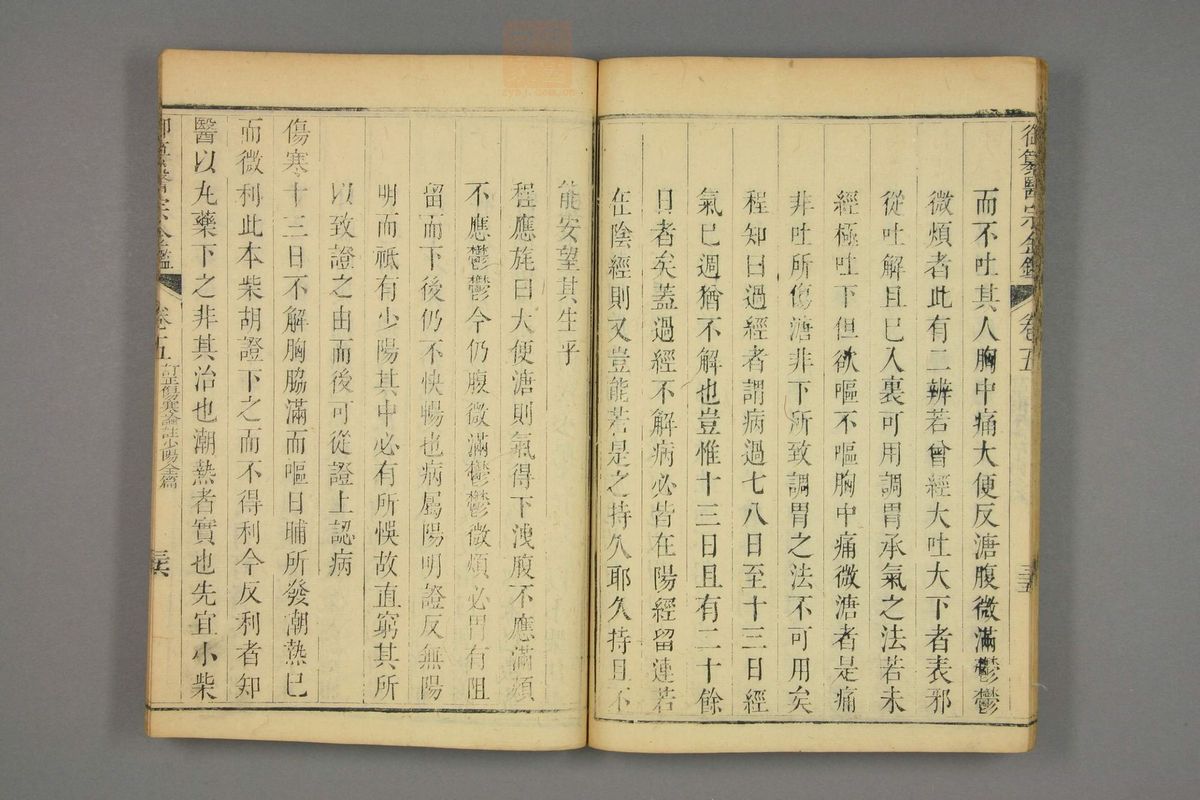 御纂醫宗金鑑 卷五 三五
而不吐其人胸中痛大便反溏腹微滿鬱鬱
微煩者此有二辨若曾經大吐大下者表邪
從吐解且已入裏可用調胃承氣之法若未
經極吐下但欲嘔不嘔胸中痛微溏者是痛
非吐所傷溏非下所致調胃之法不可用矣
程知曰過經者謂病過七八日至十三日經
氣已週猶不解也豈惟十三日且有二十餘
日者矣蓋過經不解病必皆在陽經留連若
在陰經則又豈能若是之持久耶久持且不
能安望其生乎
程應旄曰大便溏則氣得下洩腹不應滿煩
不應鬱鬱今仍腹微滿鬱鬱微煩必胃有阻
留而下後仍不快暢也病屬陽明證反無陽
明而祗有少陽其中必有所悞故直窮其所
以致證之由而後可從證上認病
傷寒十三日不解胸脇滿而嘔日晡所發潮熱已
而微利此本柴胡證下之而不得利今反利者知
醫以丸藥下之非其治也潮熱者實也先宜小柴
御纂醫宗金鑑 卷五 訂正傷寒論註少陽全篇 三六